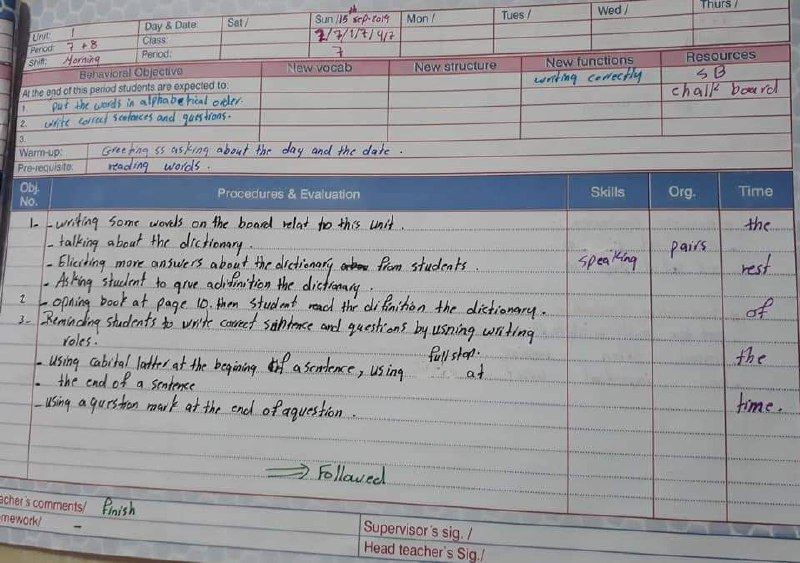 Unit: 1
Period: 7 + 8
Shift: Morning
Day & Date: Sat / Sun /15th sep-2019 Mon / Tues / Wed / Thurs /
Class: 7/7/1/7/4/7
Period: 7
Behavioral Objective New vocab New structure New functions Resources
At the end of this period students are expected to: writing correctly SB
1. put the words in alphabetical order. chalk board
2. write correct sentences and questions.
3.
Warm-up: Greeting ss asking about the day and the date .
Pre-requisite: reading words .
Obj. No. Procedures & Evaluation Skills Org. Time
1- - writing some words on the board relat to this unit . the
- talking about the dictionary .
- Eliciting more answers about the dictionary from students . speaking pairs rest
- Asking student to give adifinition the dictionary .
2 - opning book at page 10. then student read the difinition the dictionary . of
3- Reminding students to write correct sentence and questions by usning writing
roles .
- using cabital latter at the begining of a sentence, using full stop. at the
- the end of a sentence
- using a question mark at the end of aquestion . time.
⇒ Followed
acher's comments/ Finish
mework/ -
Supervisor's sig. /
Head teacher's Sig./